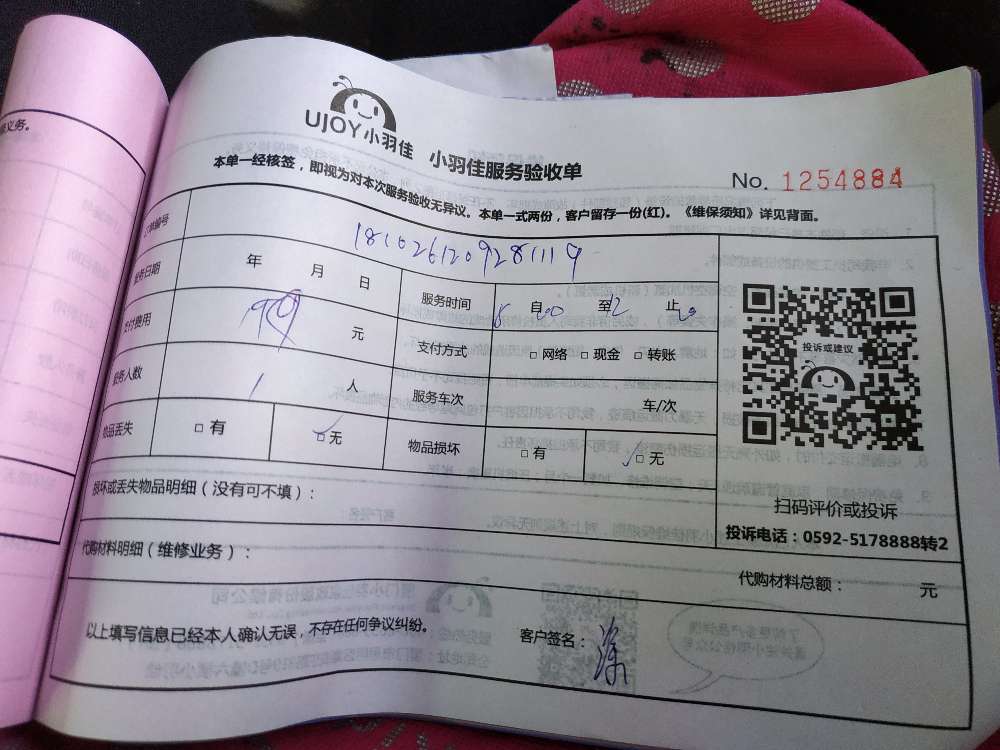 义务。
UJOY小羽佳 小羽佳服务验收单
No. 1254884
本单一经核签，即视为对本次服务验收无异议。本单一式两份，客户留存一份(红)。《维保须知》详见背面。
订单编号 1810261209281119
服务日期 年 月 日 服务时间 8 自00 至12 止20
支付费用 元 支付方式 □ 网络 □ 现金 □ 转账
服务人数 1 人 服务车次 车/次
物品丢失 □ 有 □ 无 物品损坏 □ 有 □ 无
投诉或建议
损坏或丢失物品明细（没有可不填）：
扫码评价或投诉
投诉电话：0592-5178888转2
代购材料明细（维修业务）：
代购材料总额： 元
以上填写信息已经本人确认无误，不存在任何争议纠纷。 客户签名：涂